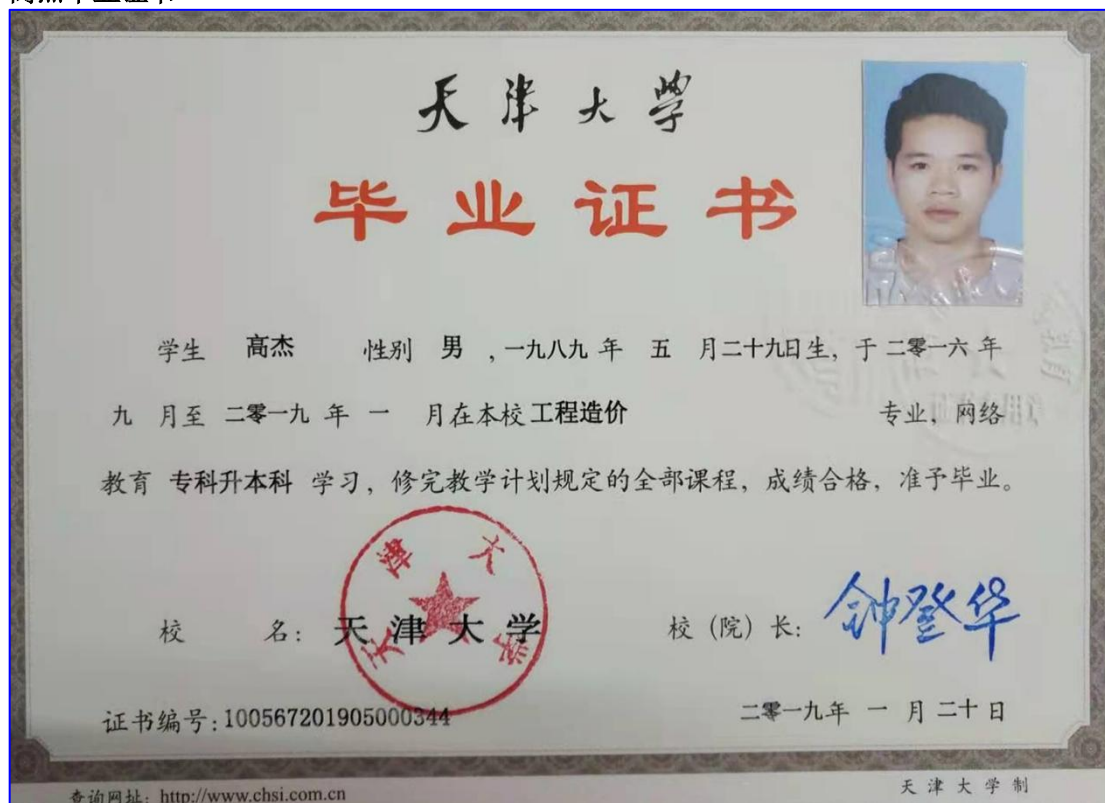 天津大学
毕业证书
学生 高杰 性别 男 ,一九八九 年 五 月二十九日生, 于 二零一六 年
九 月至 二零一九 年 一 月在本校 工程造价 专业, 网络
教育 专科升本科 学习, 修完教学计划规定的全部课程, 成绩合格, 准予毕业。
天津大学
校 名: 天津大学 校 (院) 长: 钟登华
证书编号:100567201905000344 二零一九年 一 月 二十 日
查询网址: http://www.chsi.com.cn 天津大学制